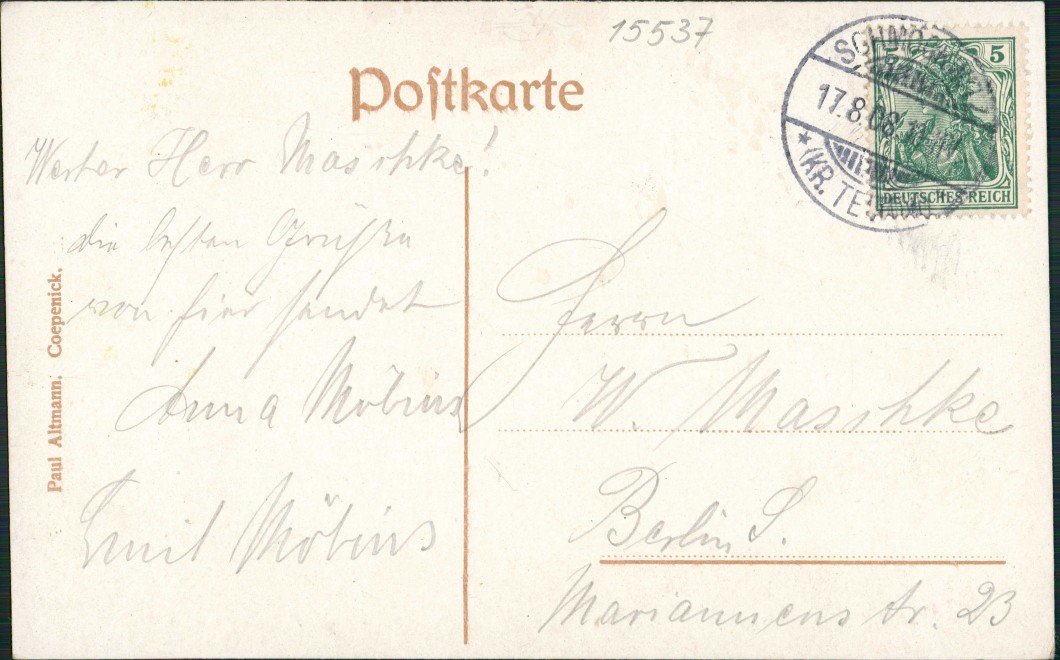 15537
Postkarte
SCHMÖ
17.8.08
* (KR. TE
5
DEUTSCHES REICH
Werter Herr Maschke!
die besten Grüße
von hier sendet
Anna Möbius
Emil Möbius
Paul Altmann. Coepenick.
Herrn
W. Maschke
Berlin S.
Mariannenstr. 23